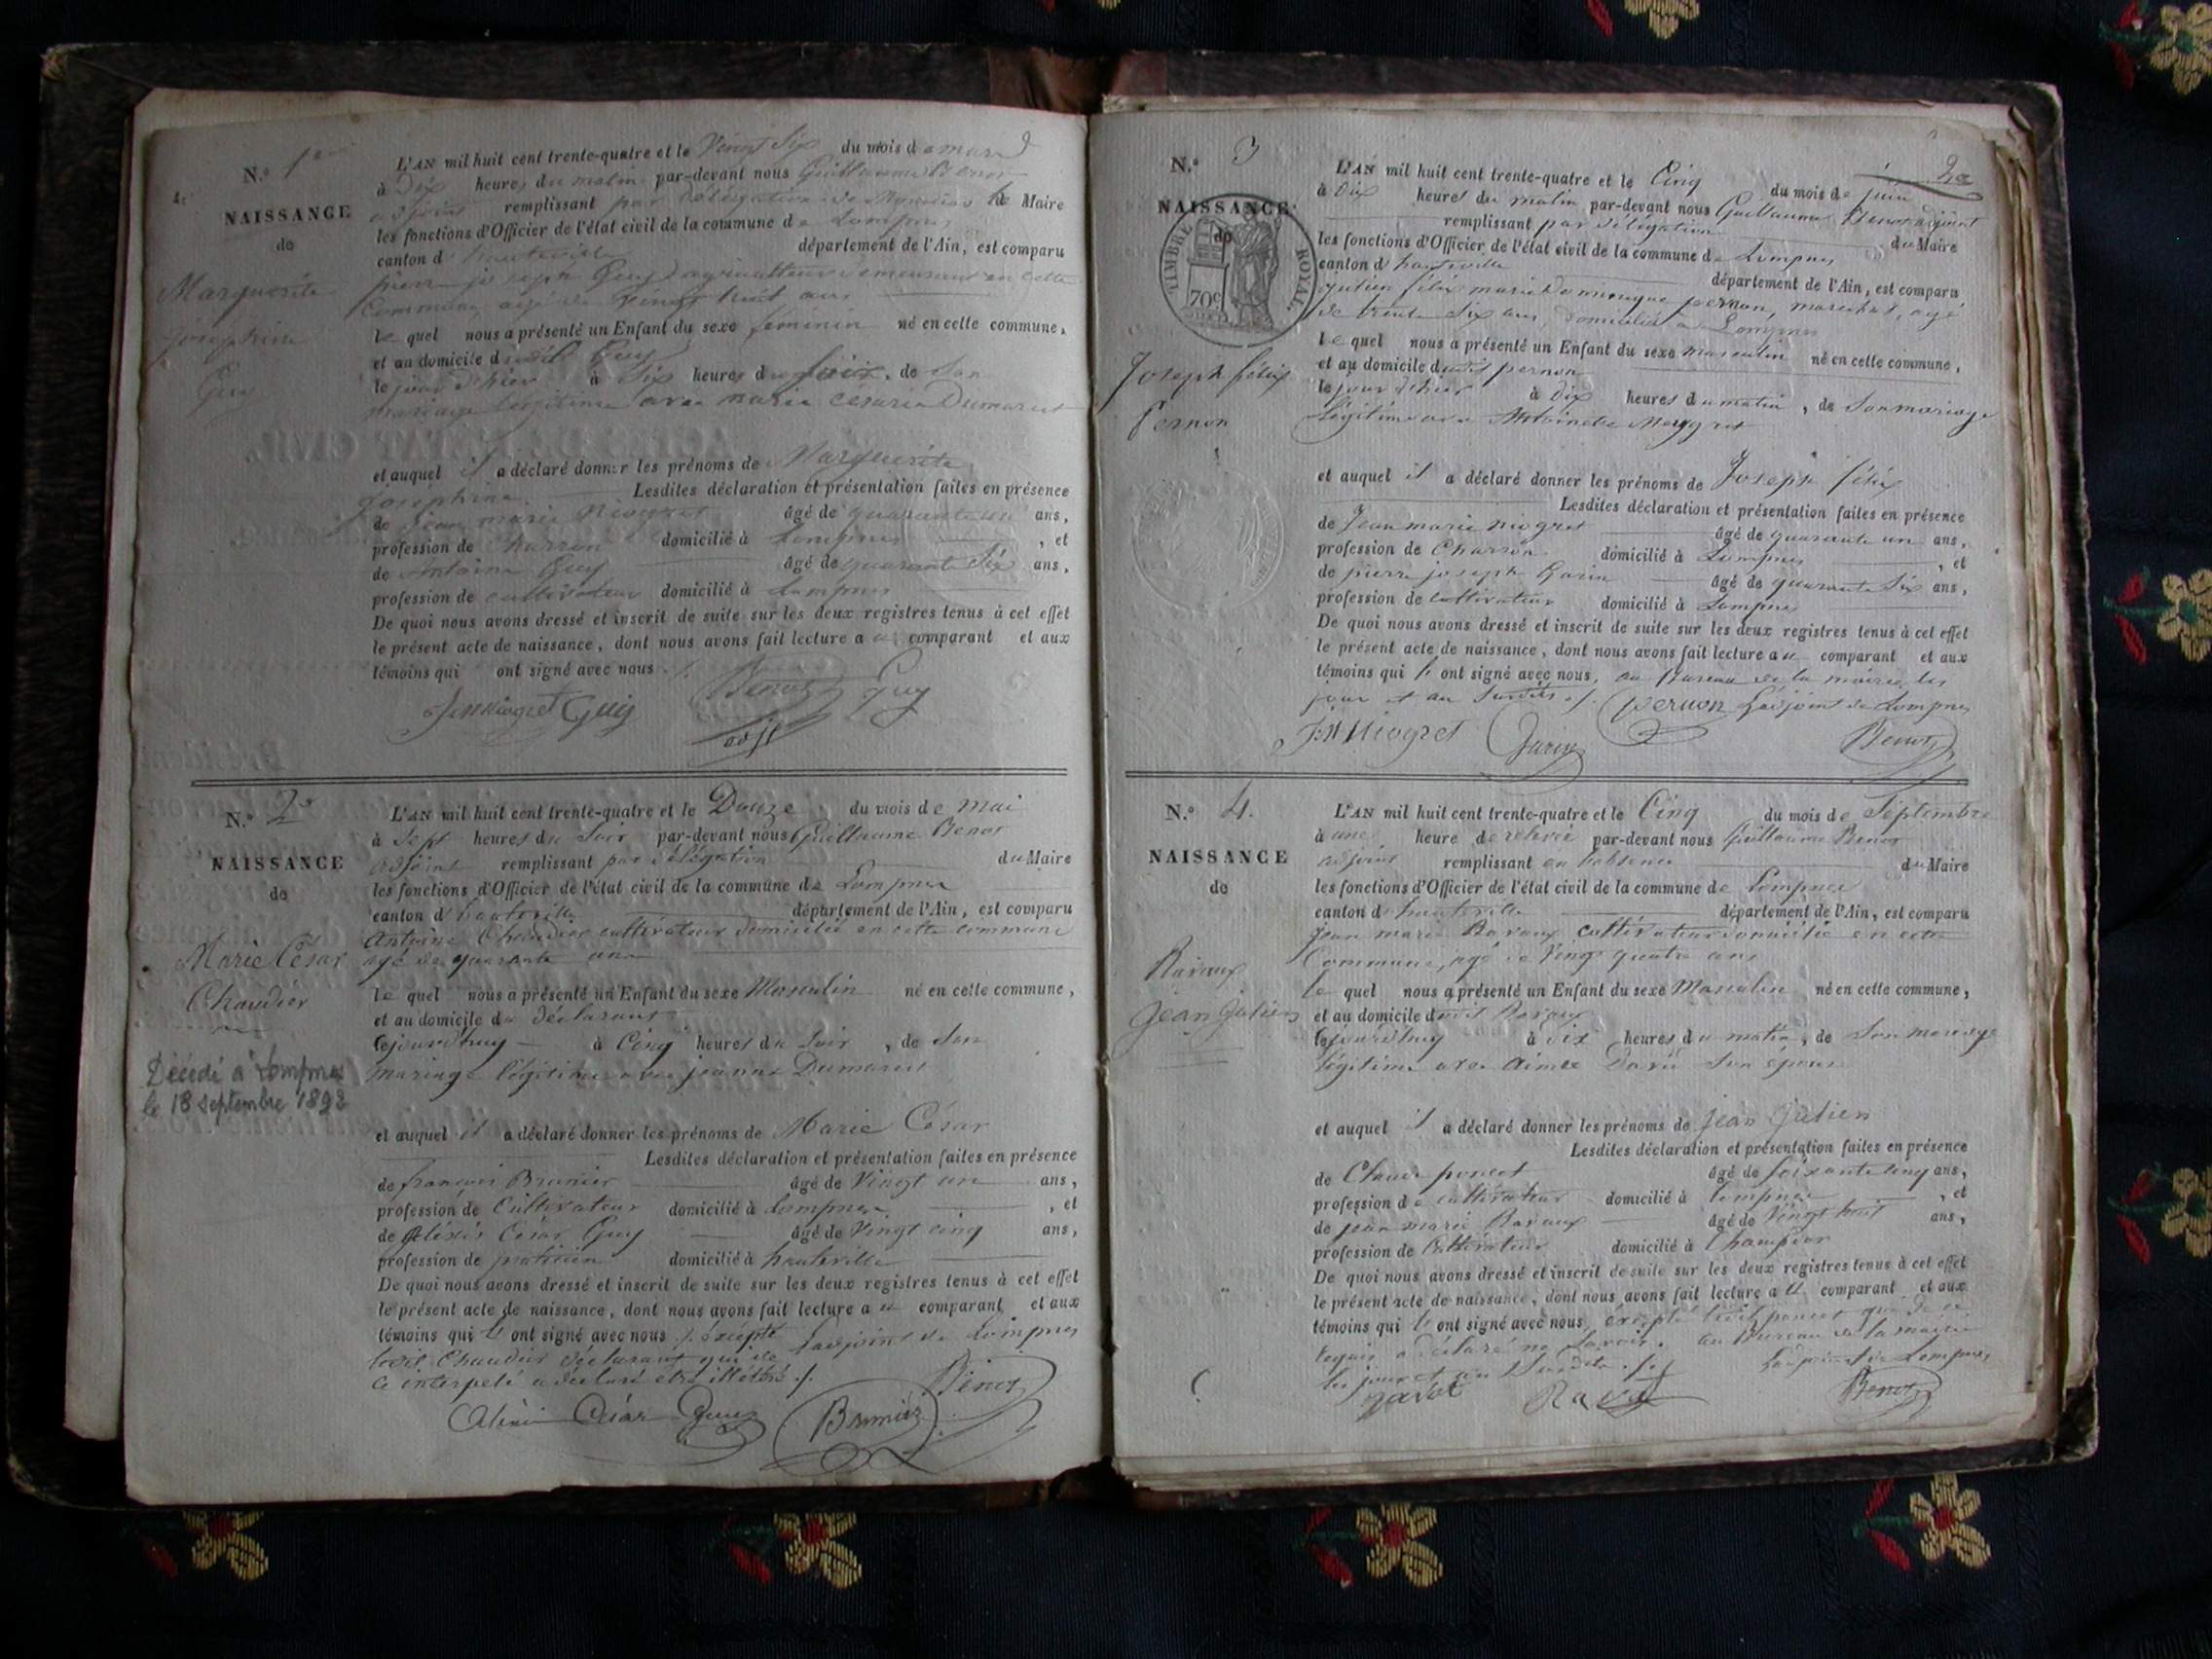 N.º 1er
NAISSANCE
de
Marguerite
Joséphine
Guy
L'AN mil huit cent trente-quatre et le Vingt Six du mois de mars
à Dix heures du matin par-devant nous Guillaume Benos
adjoint remplissant par délégation de Monsieur le Maire
les fonctions d'Officier de l'état civil de la commune de Lompnes
canton d'hauteville département de l'Ain, est comparu
pierre joseph Guy agriculteur demeurant en cette
Commune, agé de Vingt huit ans
lequel nous a présenté un Enfant du sexe féminin né en cette commune,
et au domicile dudit Guy
le jour d'hier à Six heures du soir, de son
mariage légitime avec marie Césarie Dumarest
et auquel il a déclaré donner les prénoms de Marguerite
Joséphine. Lesdites déclaration et présentation faites en présence
de Jean marie Niogret âgé de quarante un ans,
profession de Charron domicilié à Lompnes, et
de Antoine Guy âgé de quarante Six ans,
profession de cultivateur domicilié à Lompnes
De quoi nous avons dressé et inscrit de suite sur les deux registres tenus à cet effet
le présent acte de naissance, dont nous avons fait lecture au comparant et aux
témoins qui ont signé avec nous ./.
JM Niogret Guy Benos Guy
adjt
N.º 2e
NAISSANCE
de
Marie César
Chaudier
Décédé à Lompnes
le 18 septembre 1892
L'AN mil huit cent trente-quatre et le Douze du mois de mai
à Sept heures du Soir par-devant nous Guillaume Benos
adjoint remplissant par délégation du Maire
les fonctions d'Officier de l'état civil de la commune de Lompnes
canton d'hauteville département de l'Ain, est comparu
Antoine Chaudier cultivateur domicilié en cette commune
agé de quarante ans
lequel nous a présenté un Enfant du sexe Masculin né en cette commune,
et au domicile du déclarant
cejourd'huy à Cinq heures du Soir, de Son
mariage légitime avec jeanne Dumarest
et auquel il a déclaré donner les prénoms de Marie César
Lesdites déclaration et présentation faites en présence
de françois Brunier âgé de Vingt un ans,
profession de Cultivateur domicilié à Lompnes, et
de Aléxis César Guy âgé de Vingt cinq ans,
profession de praticien domicilié à hauteville
De quoi nous avons dressé et inscrit de suite sur les deux registres tenus à cet effet
le présent acte de naissance, dont nous avons fait lecture au comparant et aux
témoins qui ont signé avec nous ./. éxcepté L'adjoint de Lompnes
ledit Chaudier déclarant qui de
ce interpelé a déclaré être illétéré ./. Benos
Aléxis César Guy Brunier
N.º 3
NAISSANCE
de
TIMBRE ROYAL
70c
Joseph félix
Pernon
L'AN mil huit cent trente-quatre et le Cinq du mois de juin
à Dix heures du matin par-devant nous Guillaume Benos adjoint
remplissant par délégation du Maire
les fonctions d'Officier de l'état civil de la commune de Lompnes
canton d'hauteville département de l'Ain, est comparu
julien félix marie Dominique pernon, marechal, agé
de trente Six ans, domicilié à Lompnes
lequel nous a présenté un Enfant du sexe masculin né en cette commune,
et au domicile dudit pernon
le jour d'hier à Dix heures du matin, de Son mariage
Légitime avec Antoinette Meygret
et auquel il a déclaré donner les prénoms de Joseph félix
Lesdites déclaration et présentation faites en présence
de Jean marie niogret âgé de quarante un ans,
profession de Charron domicilié à Lompnes, et
de pierre joseph Garin âgé de quarante Six ans,
profession de Cultivateur domicilié à Lompnes
De quoi nous avons dressé et inscrit de suite sur les deux registres tenus à cet effet
le présent acte de naissance, dont nous avons fait lecture au comparant et aux
témoins qui ont signé avec nous, au Bureau de la mairie les
jour et an Susdits ./. pernon L'adjoint de Lompnes
JM Niogret Garin Benos
N.º 4.
NAISSANCE
de
Ravaux
Jean Julien
L'AN mil huit cent trente-quatre et le Cinq du mois de Septembre
à une heure de relevée par-devant nous Guillaume Benos
adjoint remplissant en l'absence du Maire
les fonctions d'Officier de l'état civil de la commune de Lompnes
canton d'hauteville département de l'Ain, est comparu
Jean marie Ravaux cultivateur domicilié en cette
Commune, agé de Vingt quatre ans
lequel nous a présenté un Enfant du sexe Masculin né en cette commune,
et au domicile dudit Ravaux
cejourd'huy à dix heures du matin, de Son mariage
légitime avec Aimée Son épouse
et auquel il a déclaré donner les prénoms de Jean Julien
Lesdites déclaration et présentation faites en présence
de Claude poncet âgé de soixante cinq ans,
profession de cultivateur domicilié à Lompnes, et
de jean marie Ravaux âgé de Vingt huit ans,
profession de Cultivateur domicilié à Champdor
De quoi nous avons dressé et inscrit de suite sur les deux registres tenus à cet effet
le présent acte de naissance, dont nous avons fait lecture au comparant et aux
témoins qui ont signé avec nous, éxcepté ledit poncet qui de ce
requis a déclaré ne Savoir. au Bureau de la mairie
les jour et an Susdits ./. L'adjoint de Lompnes
Benos